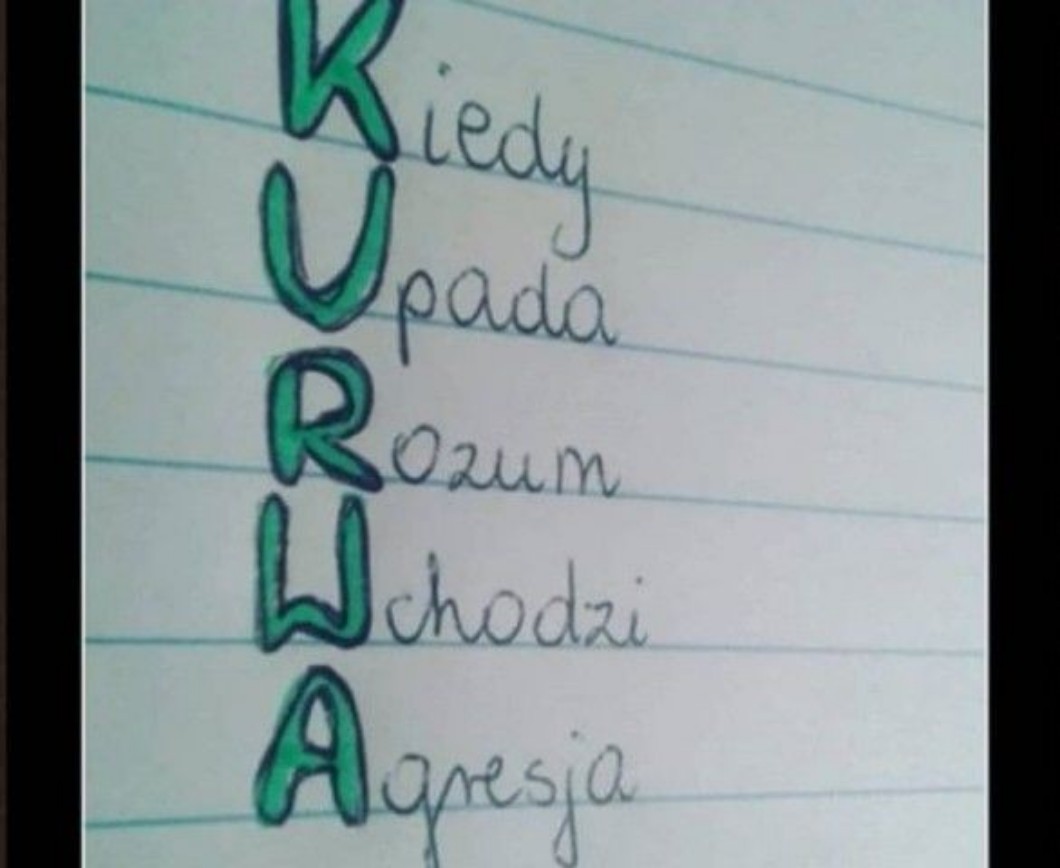 Kiedy
Upada
Rozum
Wchodzi
Agresja